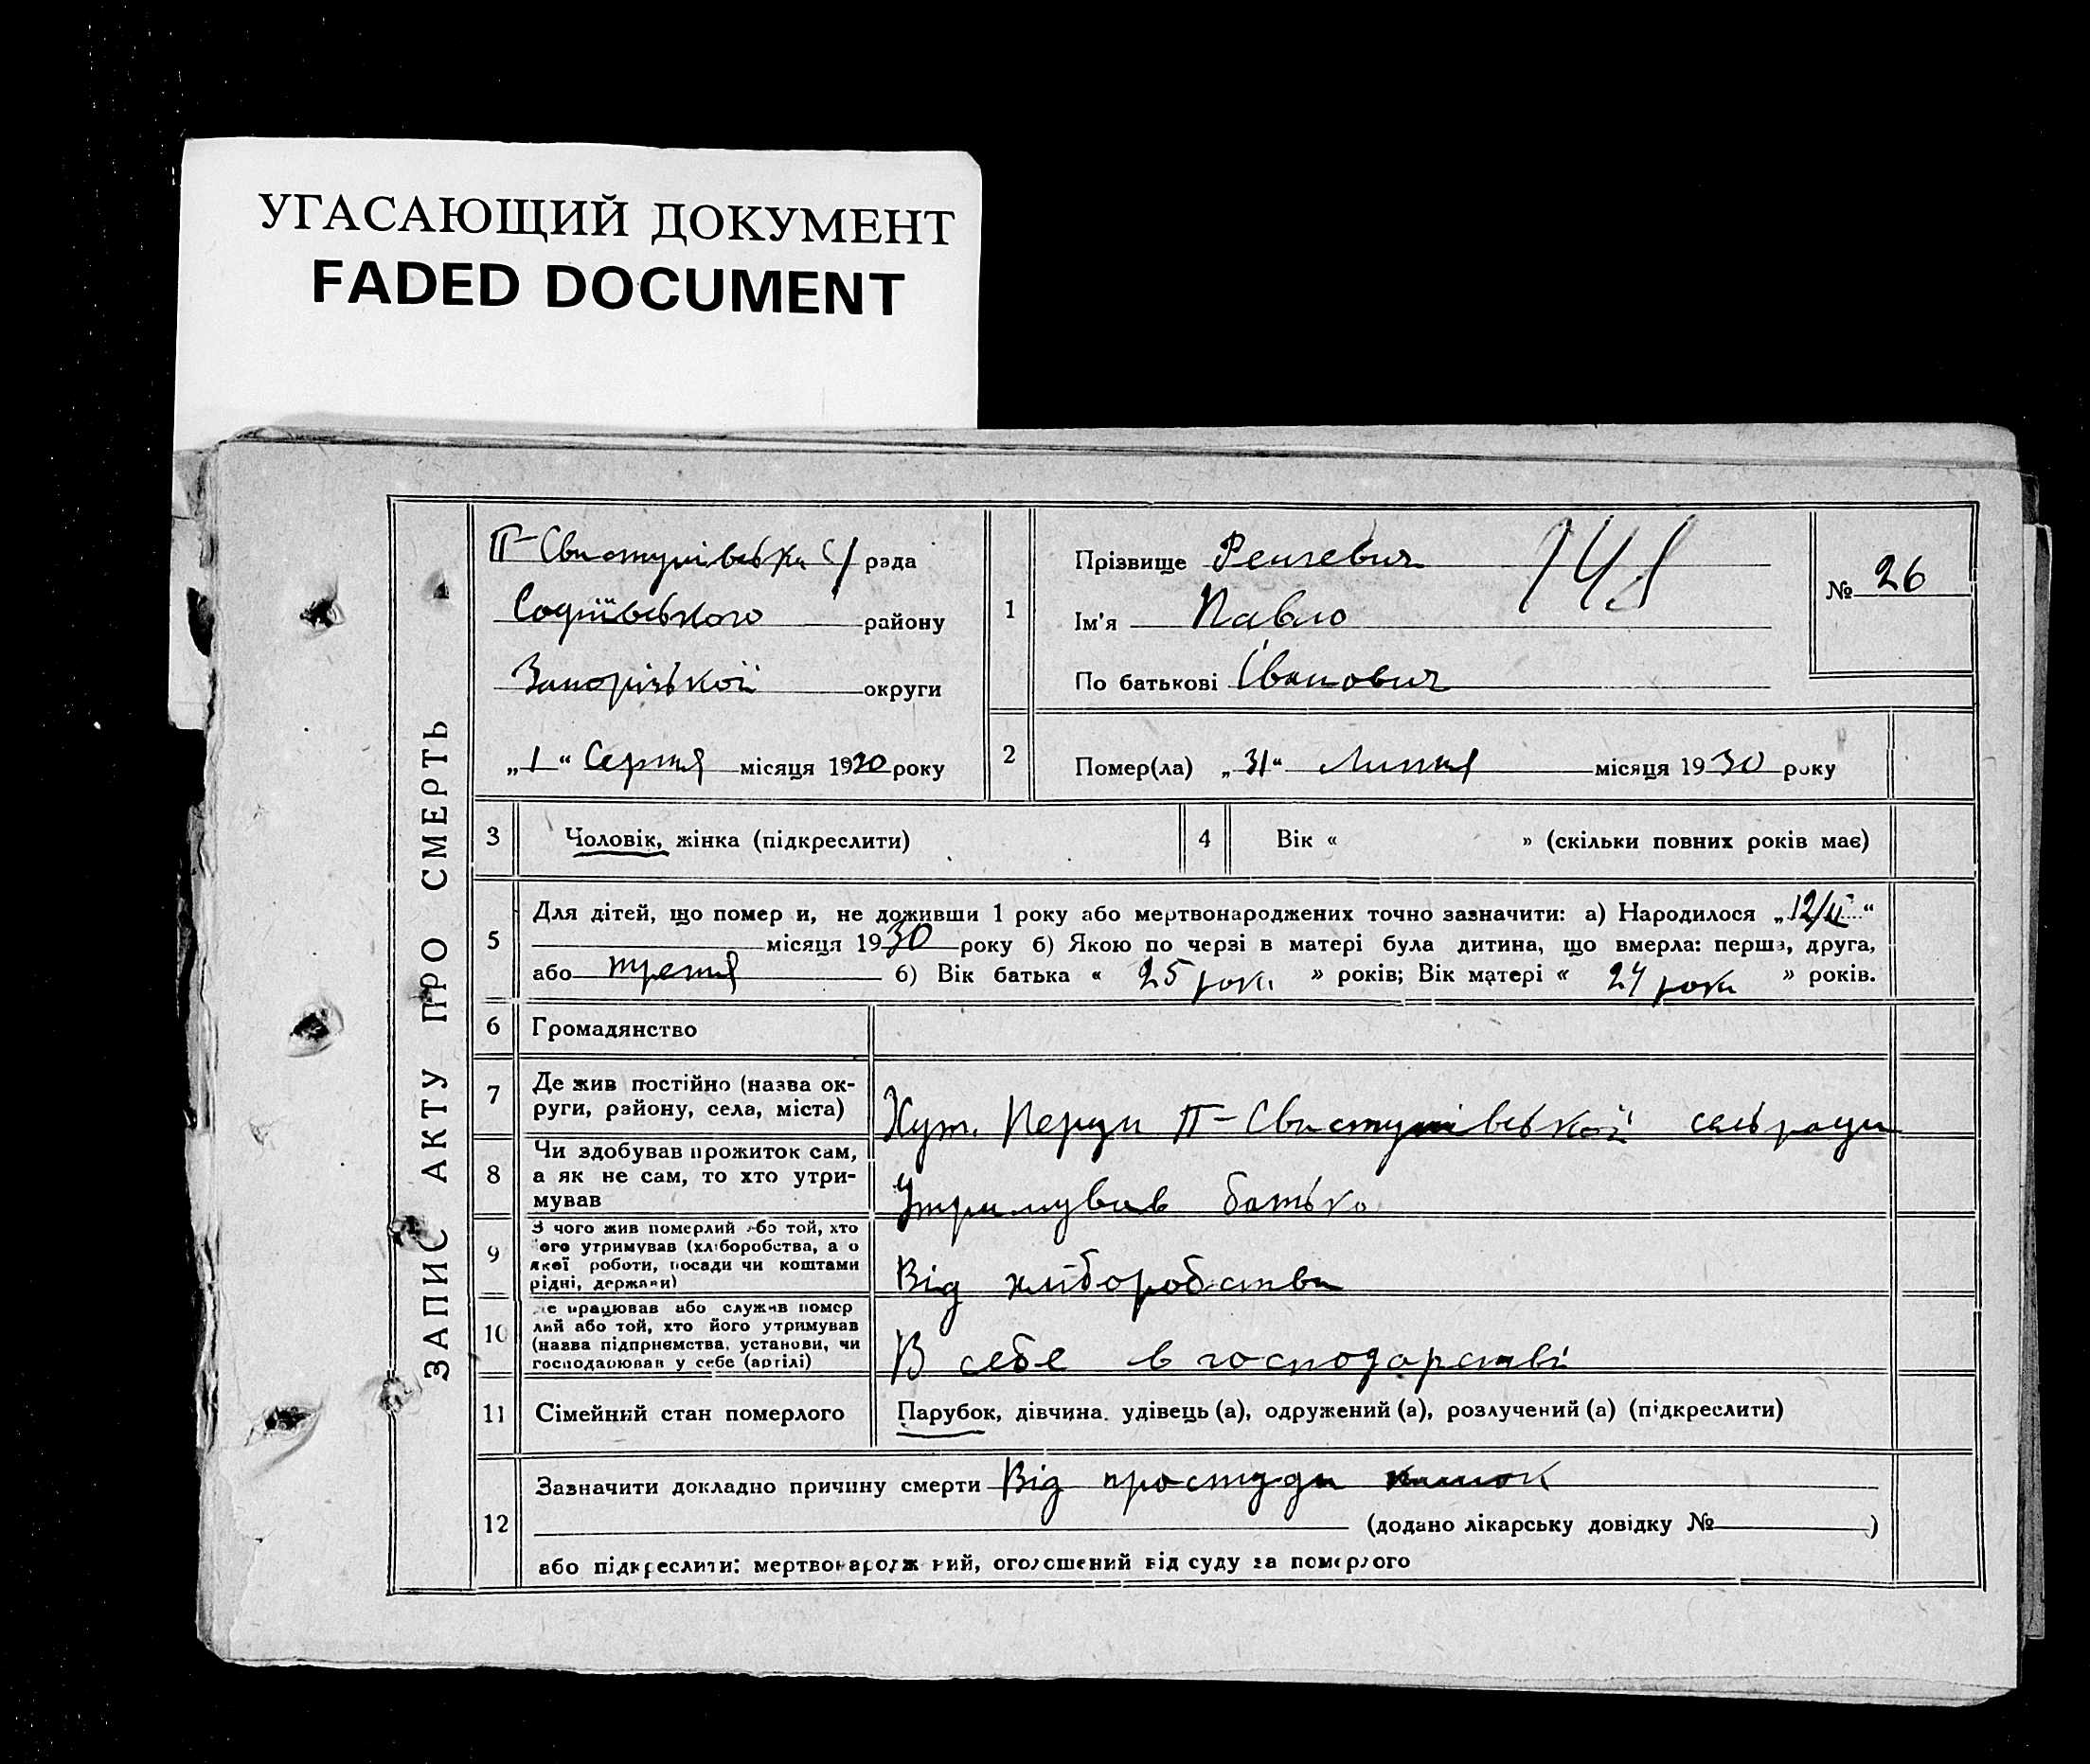 УГАСАЮЩИЙ ДОКУМЕНТ
FADED DOCUMENT
ЗАПИС АКТУ ПРО СМЕРТЬ
П-Свистунівська с/рада
Софіївського району
Запорізької округи
„1“ Серпня місяця 1930 року
1
Прізвище
148
Ім'я Павло
По батькові Іванович
№ 26
2
Помер(ла) „31“ Липня місяця 1930 року
3
Чоловік, жінка (підкреслити)
4
Вік « » (скільки повних років має)
5
Для дітей, що помер и, не доживши 1 року або мертвонароджених точно зазначити: а) Народилося „12/ “
місяця 1930 року б) Якою по черзі в матері була дитина, що вмерла: перша, друга,
або третя б) Вік батька « 25 роки » років; Вік матері « 24 роки » років.
6
Громадянство
7
Де жив постійно (назва ок-
руги, району, села, міста)
Хут. Перун П-Свистунівської сельради
8
Чи здобував прожиток сам,
а як не сам, то хто утри-
мував
Утримував батько
9
З чого жив померлий або той, хто
його утримував (хліборобства, а о
якої роботи, посади чи коштами
рідні, держави)
Від хліборобства
10
Де працював або служив помер
лий або той, хто його утримував
(назва підприємства, установи, чи
господарював у себе (артілі)
В себе в господарстві
11
Сімейний стан померлого
Парубок, дівчина, удівець (а), одружений (а), розлучений (а) (підкреслити)
12
Зазначити докладно причину смерти Від простуди кишок
(додано лікарську довідку № )
або підкреслити: мертвонародж ний, оголошений від суду за померлого